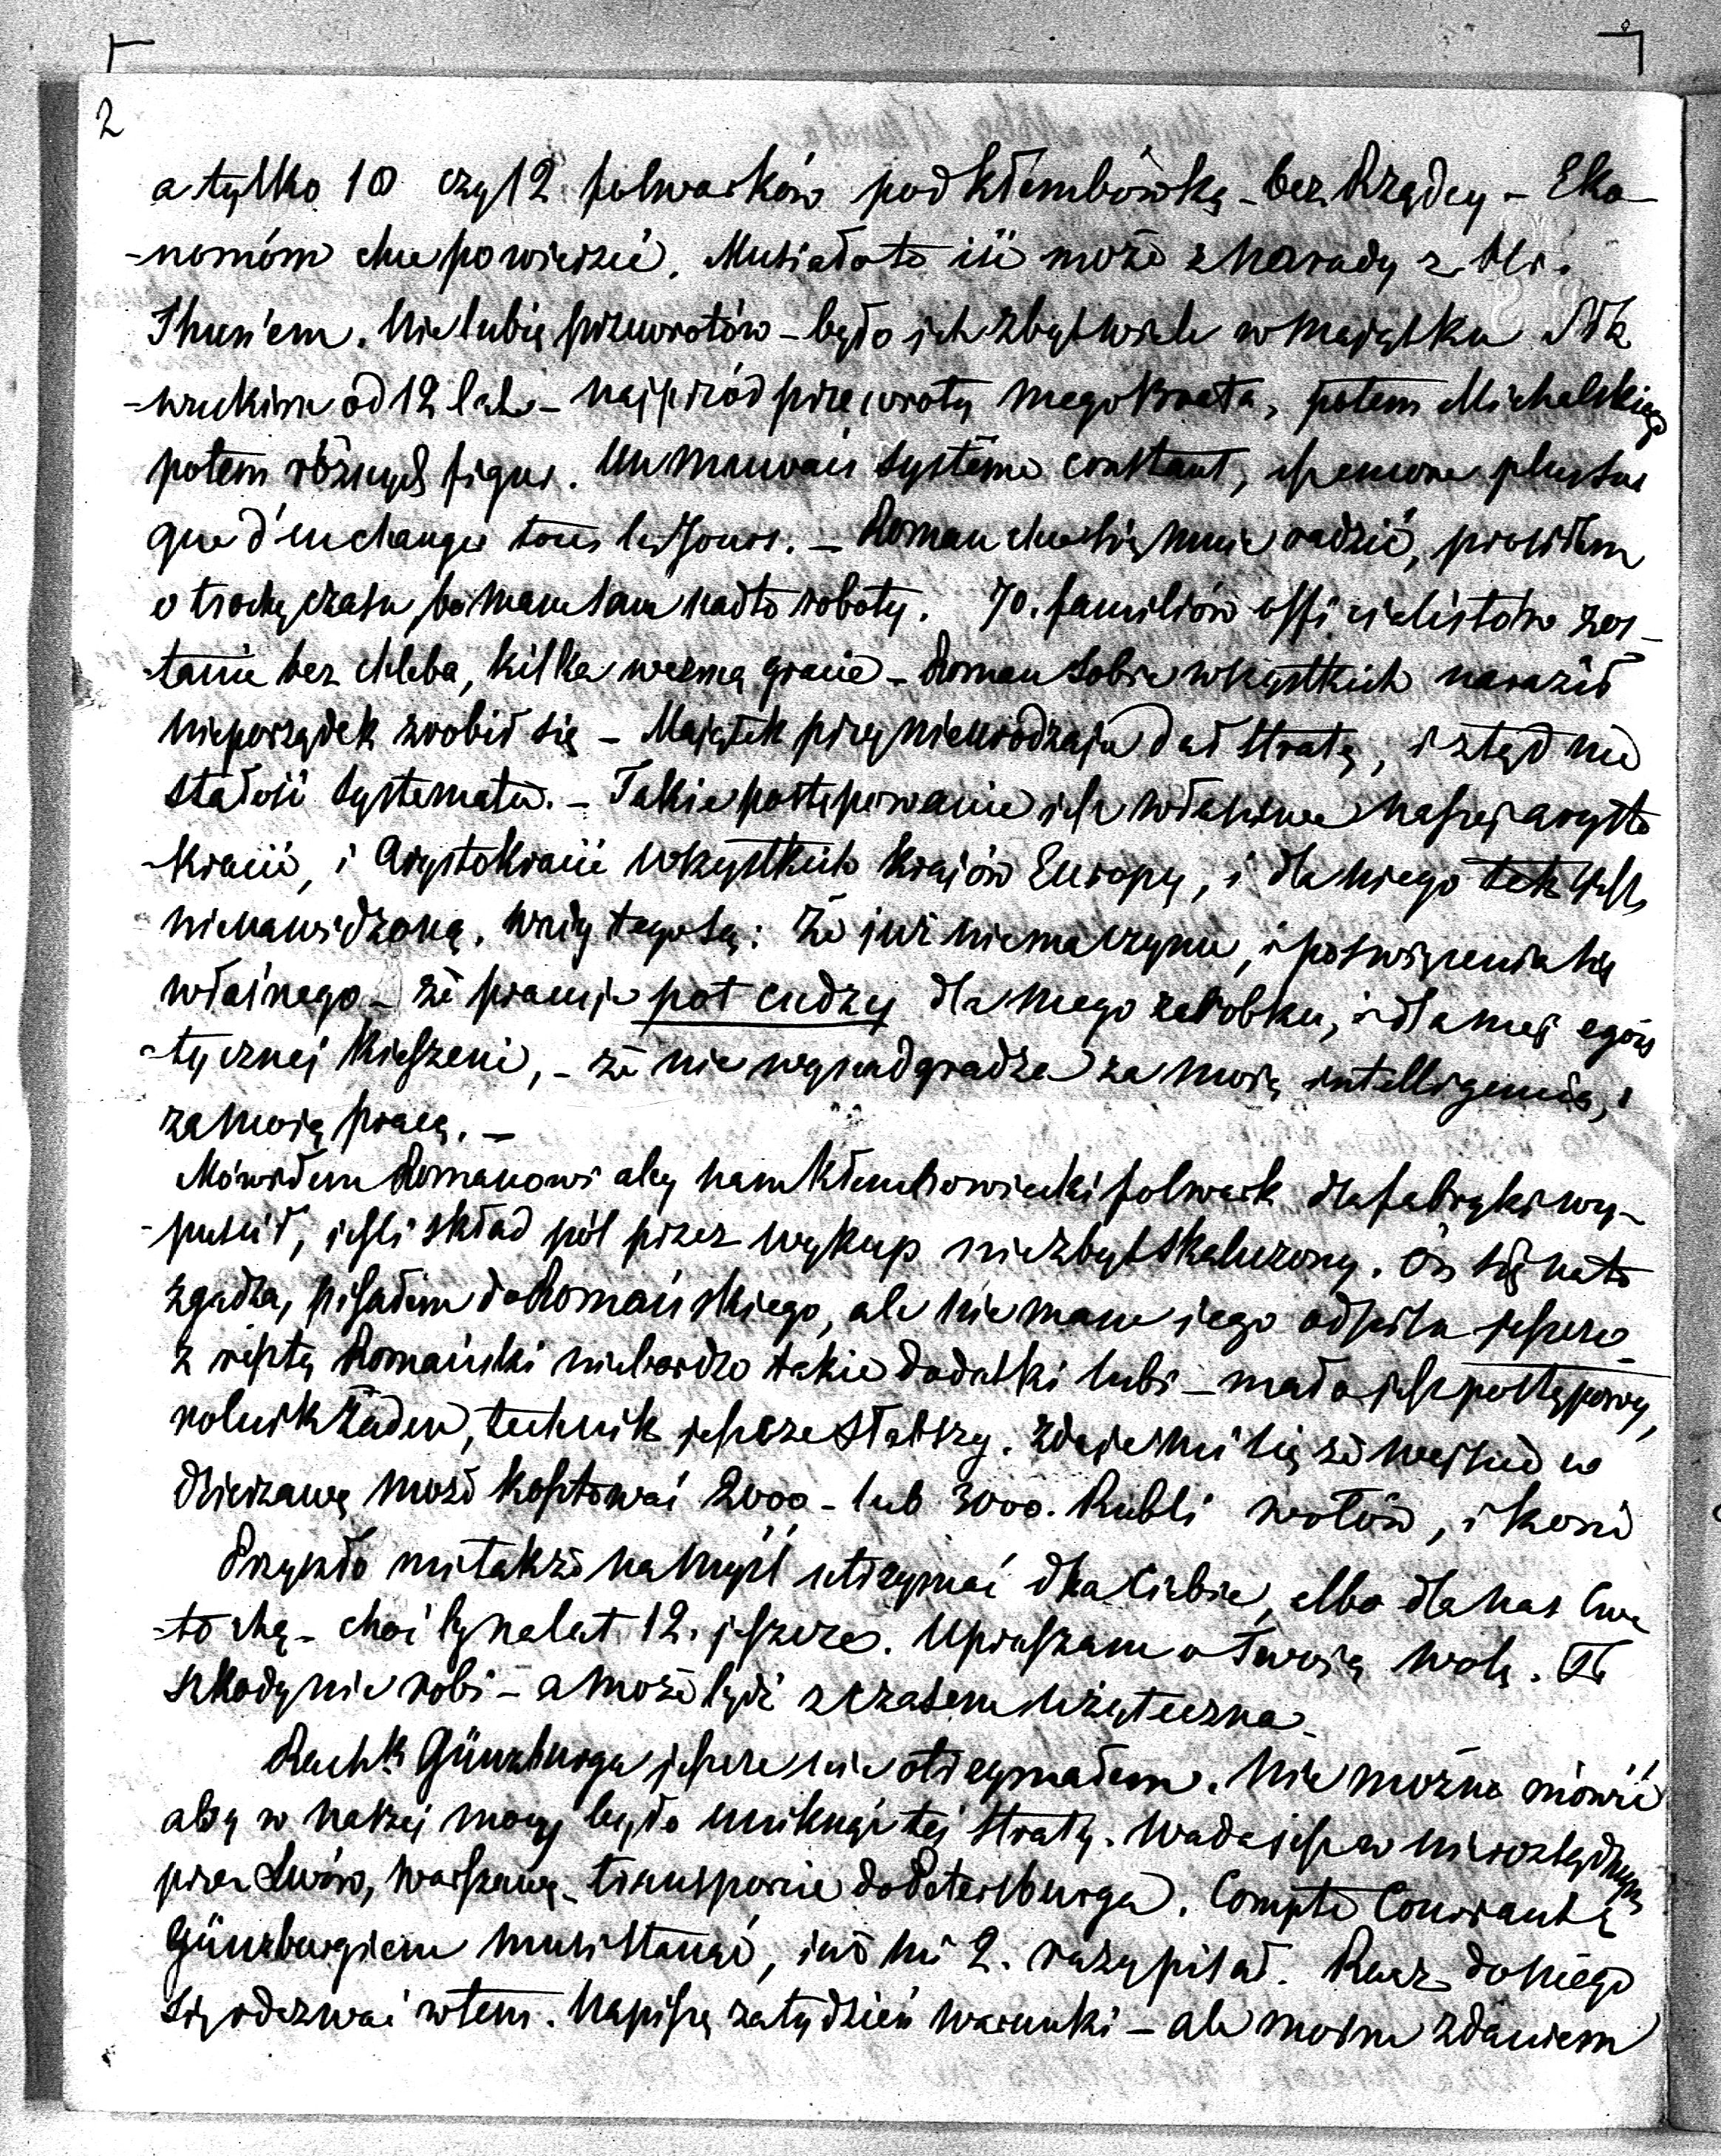 2
a tylko 10 czy 12 folwarków pod Kłembówką - bez Rządcy - Eko-
-nomóm chce powierzić. Musiało to iść może z narady z Mr.
Thun'em. Nie lubię przewrotów - było ich zbyt wiele w majątku
-wieckim od 12 lat - najpiród przewroty mego Brata, potem Michalskiego
potem różnych figur. Un mauvais système constant, est encore plus sur
que d'en changer tous les jours. - Roman chce się mnie radzić, prosiłem
o trochę czasu, bo mam sam nadto roboty. 70. familiów officialistów zos-
-tanie bez chleba, kilka wezmą gracie - Roman sobie wszystkich naraził
nieporządek zrobił się - Majątek przy nieurodzaju dał stratę, i ztąd nie
stałość systematu. - Takie postępowanie jest właściwe naszej arysto
-kracii, i Arystokracii wszystkich krajów Europy, i dla niego tak jest
nienawidzoną. Wady tego są: Że już niema czynu, i poswięcenia się
własnego - że pracuje pot cudzy dla mego zarobku, i dla mej egois
-tycznej kieszeni, - że nie wynadgradza za moją intelligencią, i
za moią pracą. -
Mówiłem Romanowi aby nam Kłembowiecki folwark dla fabryki wy-
-puścił, jeśli skład pól przez wykup niezbyt skaleczony. On się na to
zgadza, pisałem do Romańskiego, ale nie mam jego odpisu jeszcze -
z resztą Romański niebardzo takie dodatki lubi - mało jest postępowy,
rolnik żaden, technik jeszcze słabszy. Zdaje mi się że wejście w
dzierżawę może kosztować 2000 - lub 3000. Rubli wołów, i koni
Przyszło mi także na myśl utrzymać dla Ciebie, albo dla nas
-to chę - choć by na lat 12. jeszcze. Upraszam o Twoią wolą. To
szkody nie robi - a może być z czasem użyteczna -
Rachk Günzburga jeszcze nie otrzymałem. Nie można mówić
aby w naszej mocy było uniknąć tej straty. Wada jest w nierozsądnym
przez Lwów, Warszawę - transporcie do Petersburga. Compte Courrant z
Günzburgiem musi stanąć, już mi 2. razy pisał. Racz do niego
się odezwać w tem. Napiszę za tydzień warunki - ale moim zdaniem